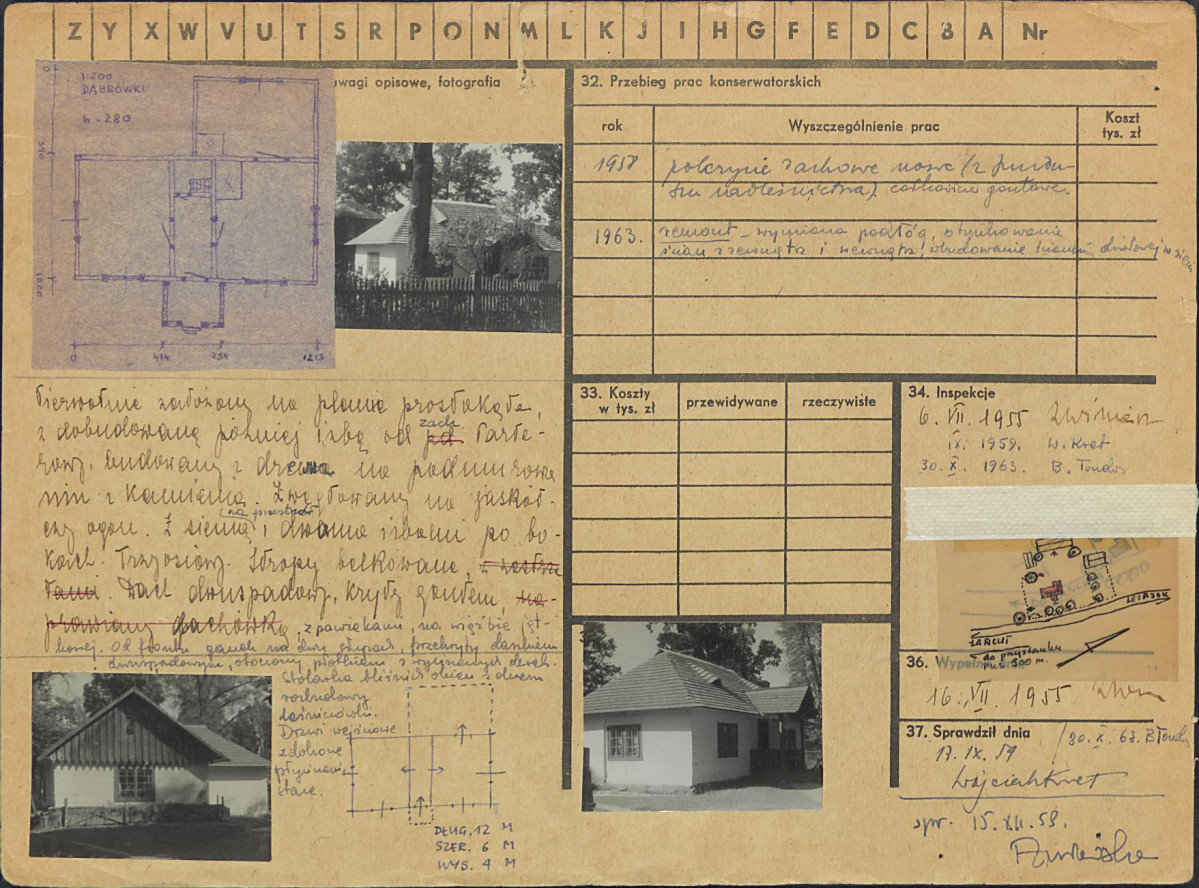 Z Y X W V U T S R P O N M L K J I H G F E D C B A Nr
uwagi opisowe, fotografia
1:200
DĄBRÓWKI
h - 280
0
340
1000
0 414 754 1213
32. Przebieg prac konserwatorskich
rok Wyszczególnienie prac Koszt tys. zł
1958 pokrycie dachowe nowe (z
nadleśnictwa) całkowicie gontowe.
1963. remont – wymiana podłóg, otynkowanie
ścian z zewnątrz i wewnątrz,
Pierwotnie założony na planie prostokąta,
z dobudowaną później izbą od zach. Parte-
rowy, budowany z drewna na podmurowa
niu z kamienia. Zwęgłowany na jaskół-
czy ogon. Z sienią (na przestrzał) i dwoma izbami po bo-
kach. Trzyosiowy. Stropy belkowane,
Dach dwuspadowy, kryty gontem, na-
prawiany dachówką, z powiekami, na więźbie st-
Od frontu ganek na dwu słupach, przekryty daszkiem
dwuspadowym, otoczony płotkiem z wyrzynanych desek.
Stolarka
rozbudowy
Drzwi wejściowe
zdobione
płycinami,
stare.
DŁUG. 12 M
SZER. 6 M
WYS. 4 M
33. Koszty w tys. zł przewidywane rzeczywiste
34. Inspekcje
6. VII. 1955
IX. 1959. W. Kret
30. X. 1963. B. Tondos
LEŻAJSK
ŁAŃCUT
do przystanku
PKS 500 m.
36. Wypełnił
16. VII. 1955
37. Sprawdził dnia
17. IX. 59 / 30. X. 63. B Tondos
Wojciech Kret
spr. 15. XII. 59.